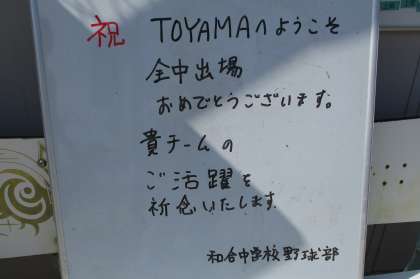 祝 TOYAMAへようこそ
全中出場
おめでとうございます。
貴チームの
ご活躍を
祈念いたします。
和合中学校野球部